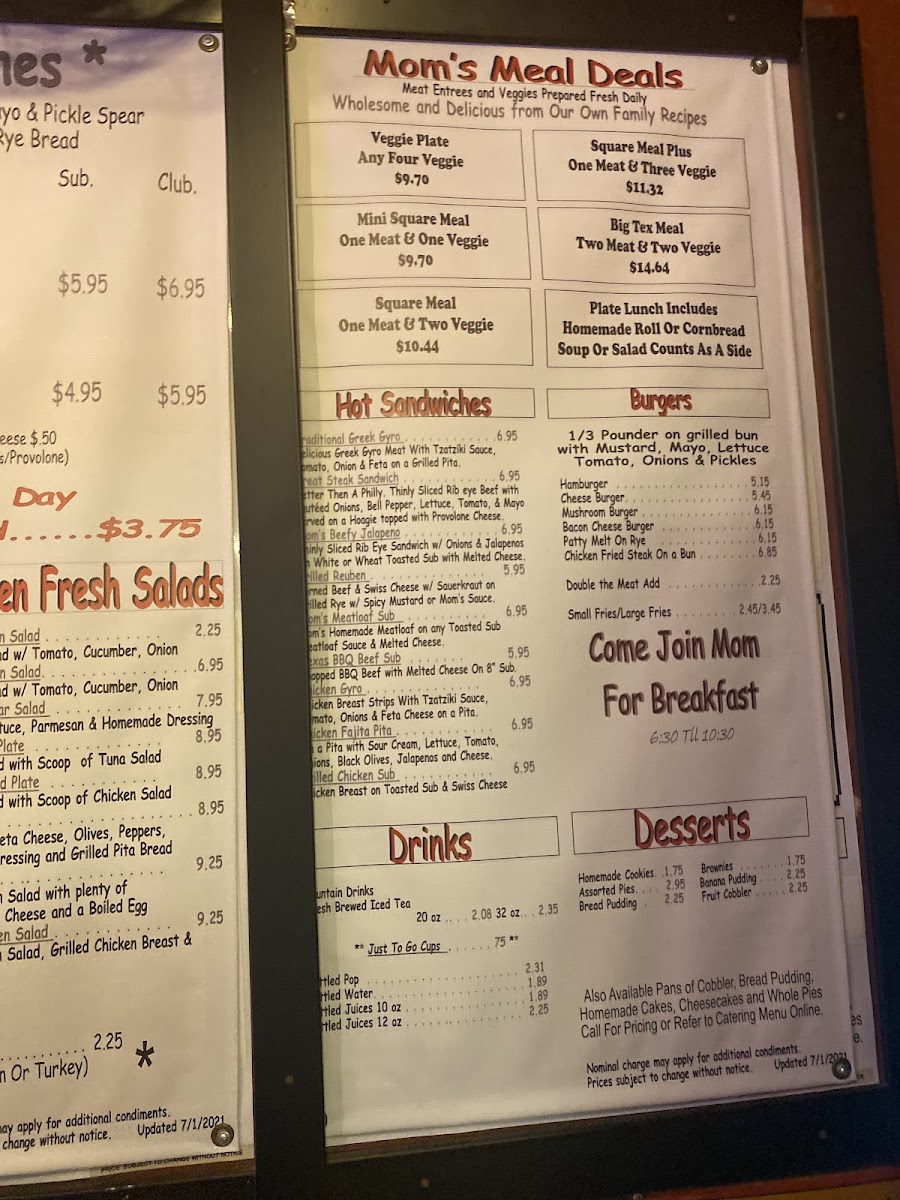 * 
Pickle Spear
Rye Bread
Sub. Club.
$5.95 $6.95
$4.95 $5.95
$.50
s/Provolone)
Day
$3.75
Fresh Salads
Salad 2.25
w/ Tomato, Cucumber, Onion
Salad 6.95
w/ Tomato, Cucumber, Onion
Salad 7.95
Parmesan & Homemade Dressing
Plate 8.95
with Scoop of Tuna Salad
Plate 8.95
with Scoop of Chicken Salad
8.95
Cheese, Olives, Peppers,
and Grilled Pita Bread
9.25
Salad with plenty of
Cheese and a Boiled Egg
Salad 9.25
Salad, Grilled Chicken Breast &
2.25
Or Turkey) *
may apply for additional condiments.
change without notice. Updated 7/1/2021
PRICE SUBJECT TO CHANGE WITHOUT NOTICE
Mom's Meal Deals
Meat Entrees and Veggies Prepared Fresh Daily
Wholesome and Delicious from Our Own Family Recipes
Veggie Plate
Any Four Veggie
$9.70
Square Meal Plus
One Meat & Three Veggie
$11.32
Mini Square Meal
One Meat & One Veggie
$9.70
Big Tex Meal
Two Meat & Two Veggie
$14.64
Square Meal
One Meat & Two Veggie
$10.44
Plate Lunch Includes
Homemade Roll Or Cornbread
Soup Or Salad Counts As A Side
Hot Sandwiches
raditional Greek Gyro 6.95
elicious Greek Gyro Meat With Tzatziki Sauce,
omato, Onion & Feta on a Grilled Pita.
reat Steak Sandwich 6.95
etter Then A Philly. Thinly Sliced Rib eye Beef with
utéed Onions, Bell Pepper, Lettuce, Tomato, & Mayo
rved on a Hoagie topped with Provolone Cheese.
om's Beefy Jalapeno 6.95
inly Sliced Rib Eye Sandwich w/ Onions & Jalapenos
n White or Wheat Toasted Sub with Melted Cheese.
rilled Reuben 5.95
rned Beef & Swiss Cheese w/ Sauerkraut on
illed Rye w/ Spicy Mustard or Mom's Sauce.
om's Meatloaf Sub 6.95
om's Homemade Meatloaf on any Toasted Sub
eatloaf Sauce & Melted Cheese.
exas BBQ Beef Sub 5.95
opped BBQ Beef with Melted Cheese On 8" Sub.
hicken Gyro 6.95
icken Breast Strips With Tzatziki Sauce,
mato, Onions & Feta Cheese on a Pita.
icken Fajita Pita 6.95
n a Pita with Sour Cream, Lettuce, Tomato,
ions, Black Olives, Jalapenos and Cheese.
illed Chicken Sub 6.95
icken Breast on Toasted Sub & Swiss Cheese
Burgers
1/3 Pounder on grilled bun
with Mustard, Mayo, Lettuce
Tomato, Onions & Pickles
Hamburger 5.15
Cheese Burger 5.45
Mushroom Burger 6.15
Bacon Cheese Burger 6.15
Patty Melt On Rye 6.15
Chicken Fried Steak On a Bun 6.85
Double the Meat Add 2.25
Small Fries/Large Fries 2.45/3.45
Come Join Mom
For Breakfast
6:30 Til 10:30
Drinks
untain Drinks
esh Brewed Iced Tea
20 oz .... 2.08 32 oz... 2.35
** Just To Go Cups ...... 75 **
ttled Pop 2.31
ttled Water 1.89
ttled Juices 10 oz 1.89
ttled Juices 12 oz 2.25
Desserts
Homemade Cookies. .1.75 Brownies 1.75
Assorted Pies 2.95 Banana Pudding 2.25
Bread Pudding 2.25 Fruit Cobbler 2.25
Also Available Pans of Cobbler, Bread Pudding,
Homemade Cakes, Cheesecakes and Whole Pies
Call For Pricing or Refer to Catering Menu Online.
Nominal charge may apply for additional condiments.
Prices subject to change without notice. Updated 7/1/2021